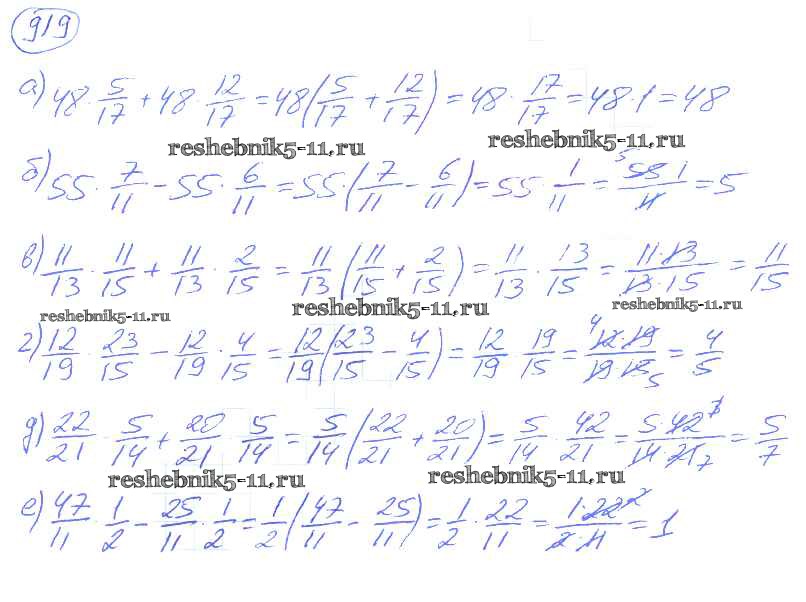 919
а) 48 · 5/17 + 48 · 12/17 = 48(5/17 + 12/17) = 48 · 17/17 = 48 · 1 = 48
reshebnik5-11.ru reshebnik5-11.ru
б) 55 · 7/11 - 55 · 6/11 = 55 · (7/11 - 6/11) = 55 · 1/11 = 5 55 · 1/11 = 5
в) 11/13 · 11/15 + 11/13 · 2/15 = 11/13 (11/15 + 2/15) = 11/13 · 13/15 = 11 · 13/13 · 15 = 11/15
reshebnik5-11.ru reshebnik5-11.ru reshebnik5-11.ru
г) 12/19 · 23/15 - 12/19 · 4/15 = 12/19 (23/15 - 4/15) = 12/19 · 19/15 = 4 12 · 19/19 · 15 5 = 4/5
д) 22/21 · 5/14 + 20/21 · 5/14 = 5/14 (22/21 + 20/21) = 5/14 · 42/21 = 5 · 42/14 · 21 7 = 5/7
reshebnik5-11.ru reshebnik5-11.ru
е) 47/11 · 1/2 - 25/11 · 1/2 = 1/2 (47/11 - 25/11) = 1/2 · 22/11 = 1 · 22 2/2 · 11 = 1